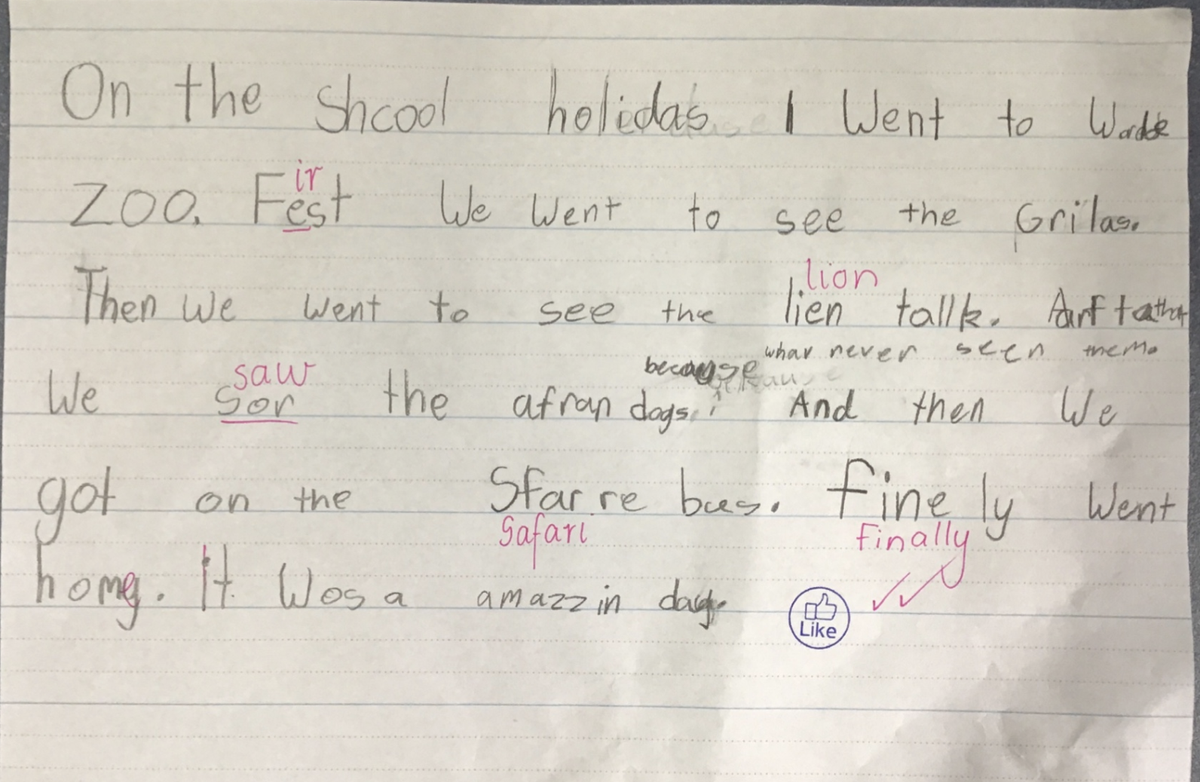 On the Shcool holidas I Went to
ir
ZOO. Fest We Went to see the Grilas.
lion
Then We went to see the lien tallk. Arftathat
whar never seen them.
because
saw
We Sor the afran dogs. And then We
got on the Sfarre bus. finely Went
Safari finally
home. It Wos a amazzin day.
Like